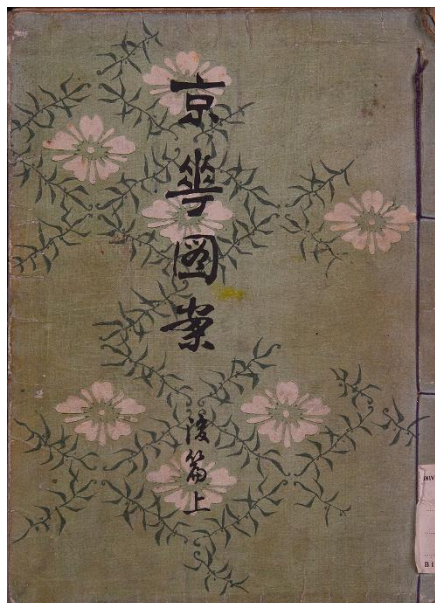 京華图案
後篇上